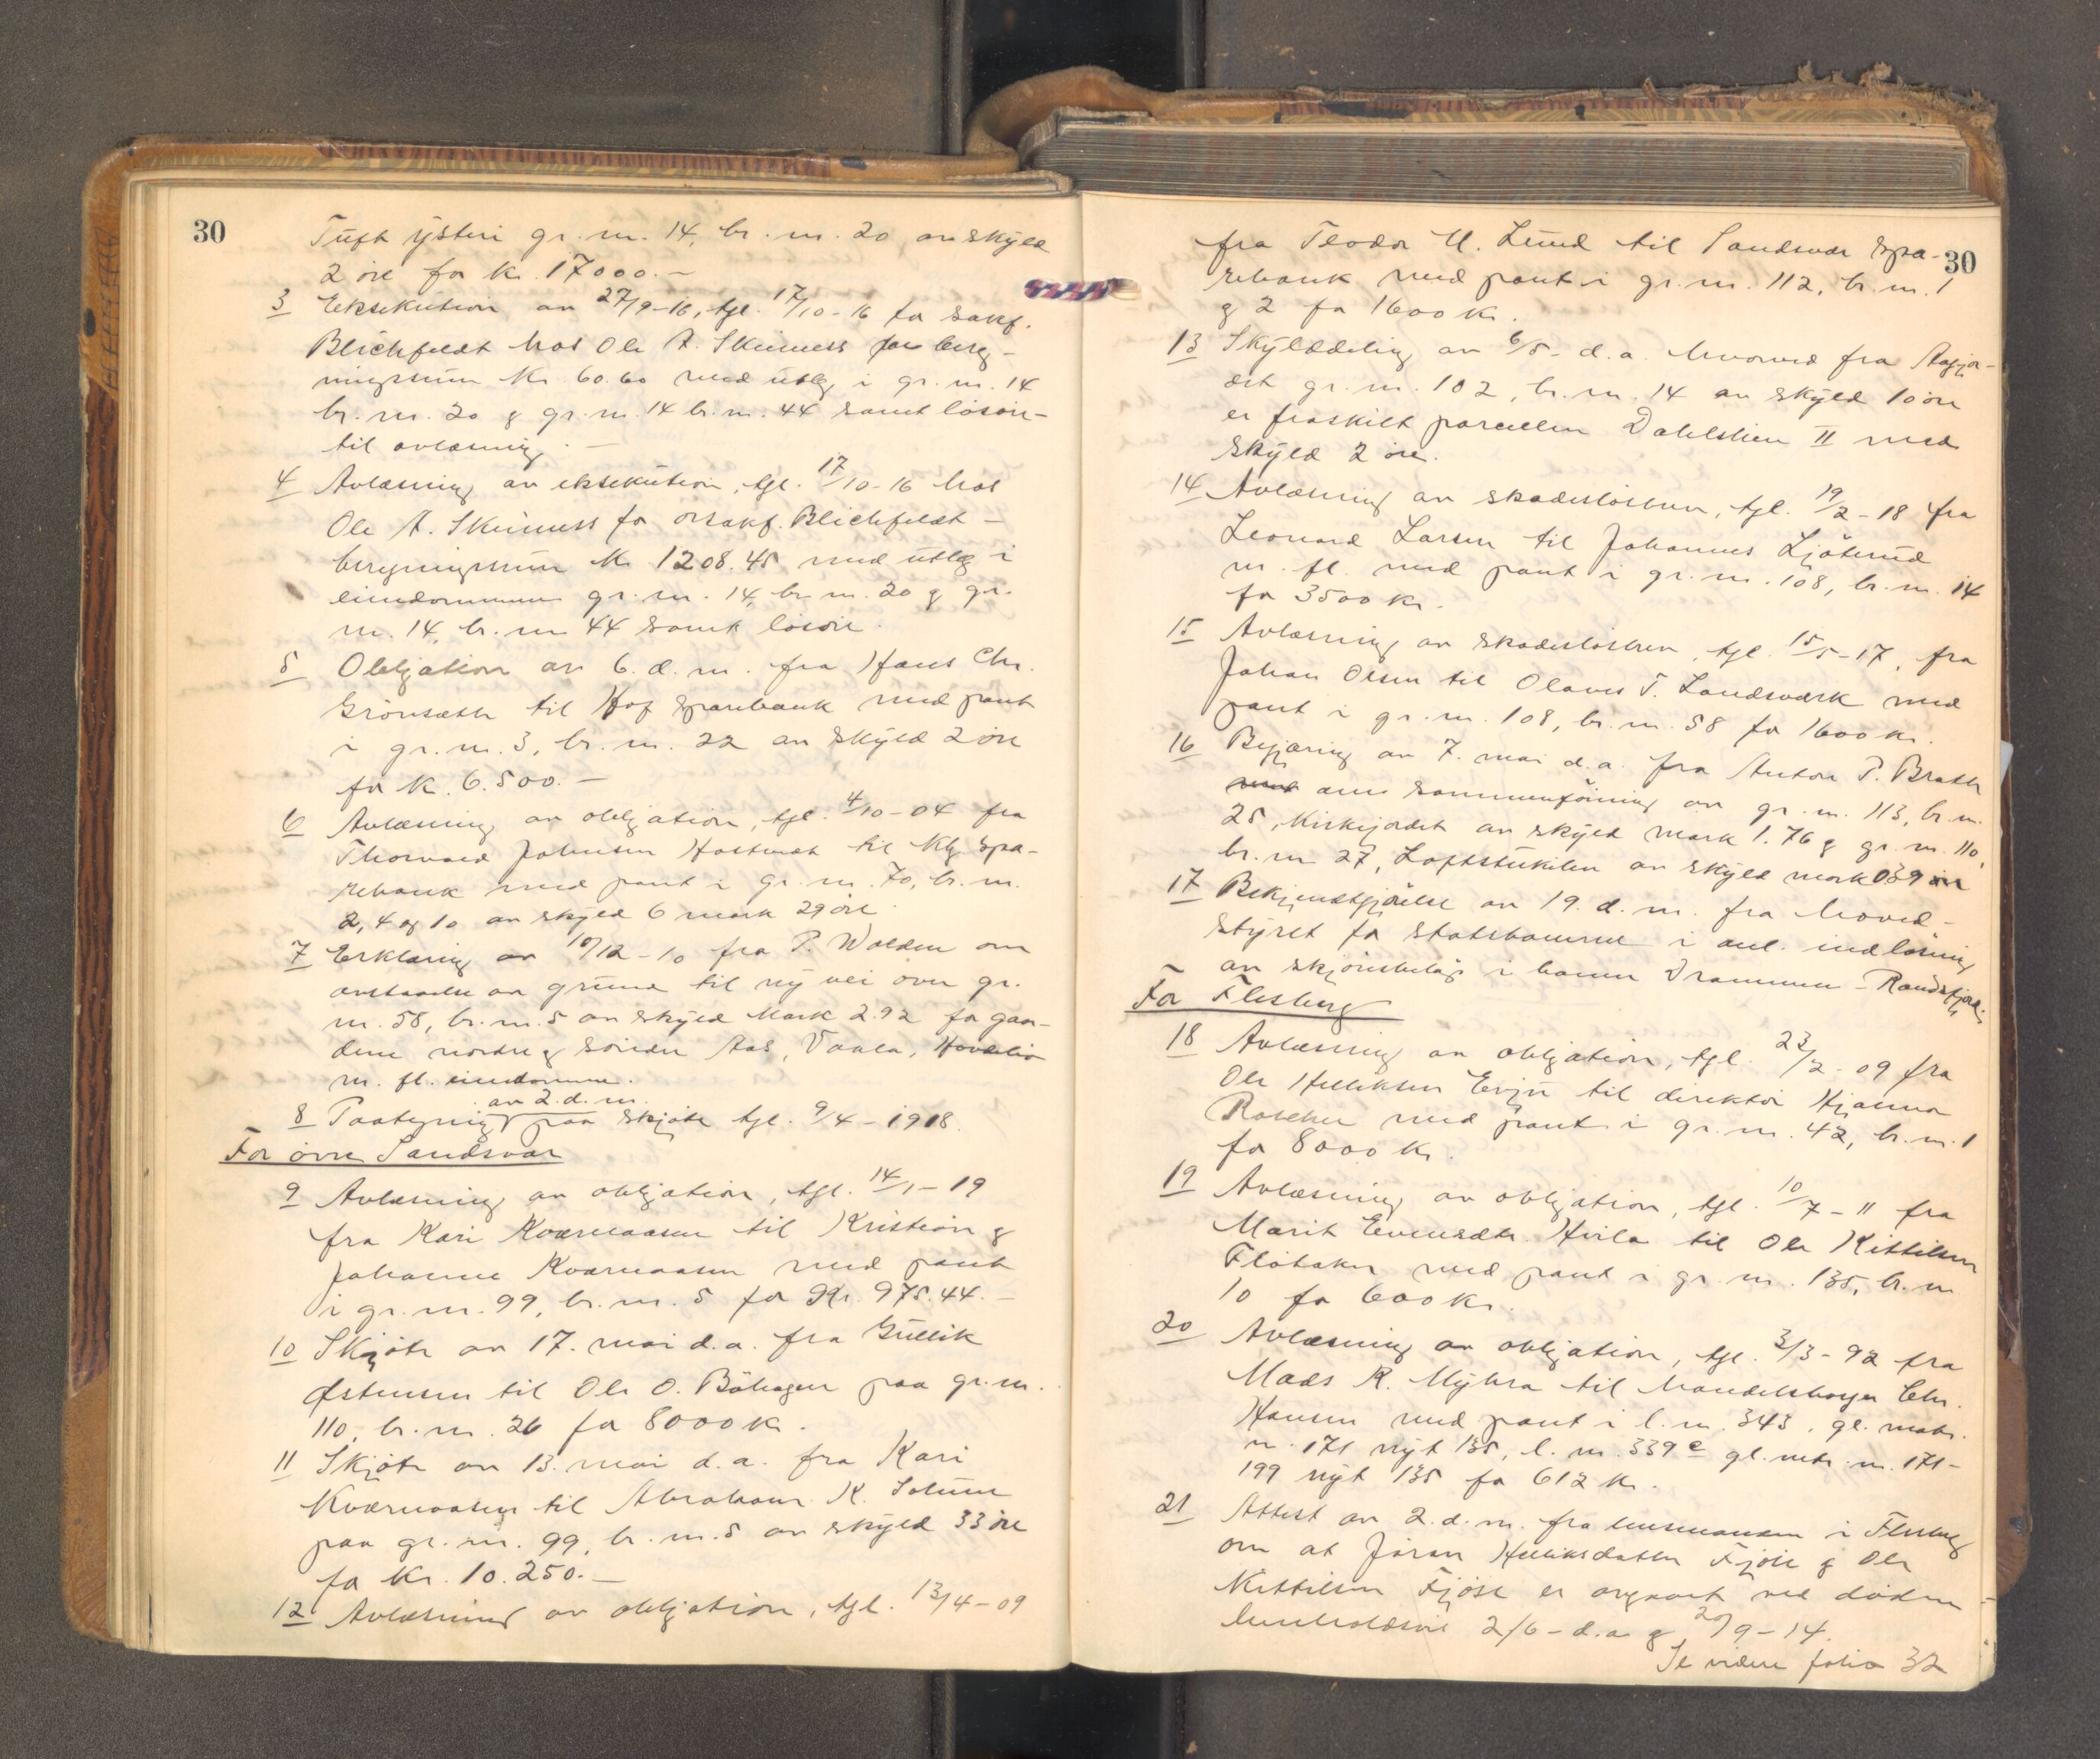 30
Tuft ysteri gr. nr. 14, br. nr. 20 av skyld
2 öre for kr. 17000.–
3 Eksekution av 27/9-16, tgl. 17/10-16 for sakf.
Blichfeldt hos Ole A. Skinness for berg-
ningssum kr. 60.60 med utlæg i gr. nr. 14
br. nr. 20 og gr. nr. 14 br. nr. 44 samt lösöre
til avlæsning. –
4 Avlæsning av eksekution, tgl. 17/10-16 hos
Ole A. Skinness for orsakf. Blichfeldt –
beregningssum kr 1208.45 med utlæg i
eiendommene gr. nr. 14, br. nr. 20 og gr.
nr. 14, br. nr 44 samt lösöre.
5 Obligation av 6. d. m. fra Hans Chr.
Grönsæth til Hof sparebank med pant
i gr. nr. 3, br. nr. 22 av skyld 2 öre
for k. 6.500.–
6 Avlæsning av obligation, tgl. 4/10-04 fra
Thorvald Johnsen Hostvedt til Kbg. spa-
rebank med pant i gr. nr. 70, br. nr.
2, 4 og 10 av skyld 6 mark 29 öre.
7 Erklæring av 10/12-10 fra P. Wolden om
avstaaelse av grund til ny vei over gr.
nr. 58, br. nr. 5 av skyld Mark 2.92 for gaar-
dene nordre og söndre Aas, Vaala, Hovdelia
m. fl. eiendomme.
av 2. d. m.
8 Paategning paa skjöte tgl. 9/4-1918.
For övre Sandsvær
9 Avlæsning av obligation, tgl. 14/1-19
fra Kari Kværnaasen til Kristian og
Johanne Kværnaasen med pant
i gr. nr. 99, br. nr. 5 for Kr. 975.44.–
10 Skjöte av 17. mai d. a. fra Gullik
Østensen til Ole O. Böhagen paa gr. nr.
110, br. nr. 26 for 8000 k.
11 Skjöte av 13. mai d. a. fra Kari
Kværnaasen til Abraham K. Solum
paa gr. nr. 99, br. nr. 5 av skyld 33 öre
for kr. 10.250.–
12 Avlæsning av obligation, tgl. 13/4-09
30
fra Teodor U. Lund til Sandsvær spa-
rebank med pant i gr. nr. 112, br. nr. 1
og 2 for 1600 kr.
13 Skylddeling av 6/5- d. a. hvorved fra Aagjor-
det gr. nr. 102, br. nr. 14 av skyld 10 öre
er fraskilt parcellen Dahlslien II med
skyld 2 öre.
14 Avlæsning av skadeslösbrev, tgl. 19/2-18 fra
Leonard Larsen til Johannes Ljöterud
m. fl. med pant i gr. nr. 108, br. nr. 14
for 3500 kr.
15 Avlæsning av skadeslösbrev, tgl. 15/5-17, fra
Johan Olsen til Olaves T. Landsværk med
pant i gr. nr. 108, br. nr. 58 for 1600 kr.
16 Begjæring av 7. mai d. a. fra Anton P. Brath
om sammenföining av gr. nr. 113, br. nr.
25, Kirkejordet av skyld mark 1.76 og gr. nr. 110,
br. nr 27, Loftstukilen av skyld mark 0.39 öre
17 Bekjendtgjörelse av 19. d. m. fra hoved-
styret for statsbanerne i anl. indlösning
av skjönsbelöp i banen Drammen – Randsfjord.
For Flesberg
18 Avlæsning av obligation, tgl. 23/2-09 fra
Ole Helliksen Evju til direktör Hjalmar
Roscher med pant i gr. nr. 42, br. nr. 1
for 8000 kr.
19 Avlæsning av obligation, tgl. 10/7-11 fra
Marit Evensdtr. Hvila til Ole Kittilsen
Flötaker med pant i gr. nr. 135, br. nr
10 for 600 kr.
20 Avlæsning av obligation, tgl. 3/3-92 fra
Mads K. Myhra til handelsborger Chr.
Hansen med pant i l. nr. 343, gl. matr.
n. 171 nyt 135, l. nr. 339 c gl. mtr. nr. 171-
199 nyt 135 for 612 kr.
21 Attest av 2. d. m. fra lensmanden i Flesberg
om at Jöran Helliksdatter Fjöse og Ole
Kittilsen Fjöse er avgaat ved döden
henholdsvis 2/6- d. a. og 20/9-14.
Se videre folio 32